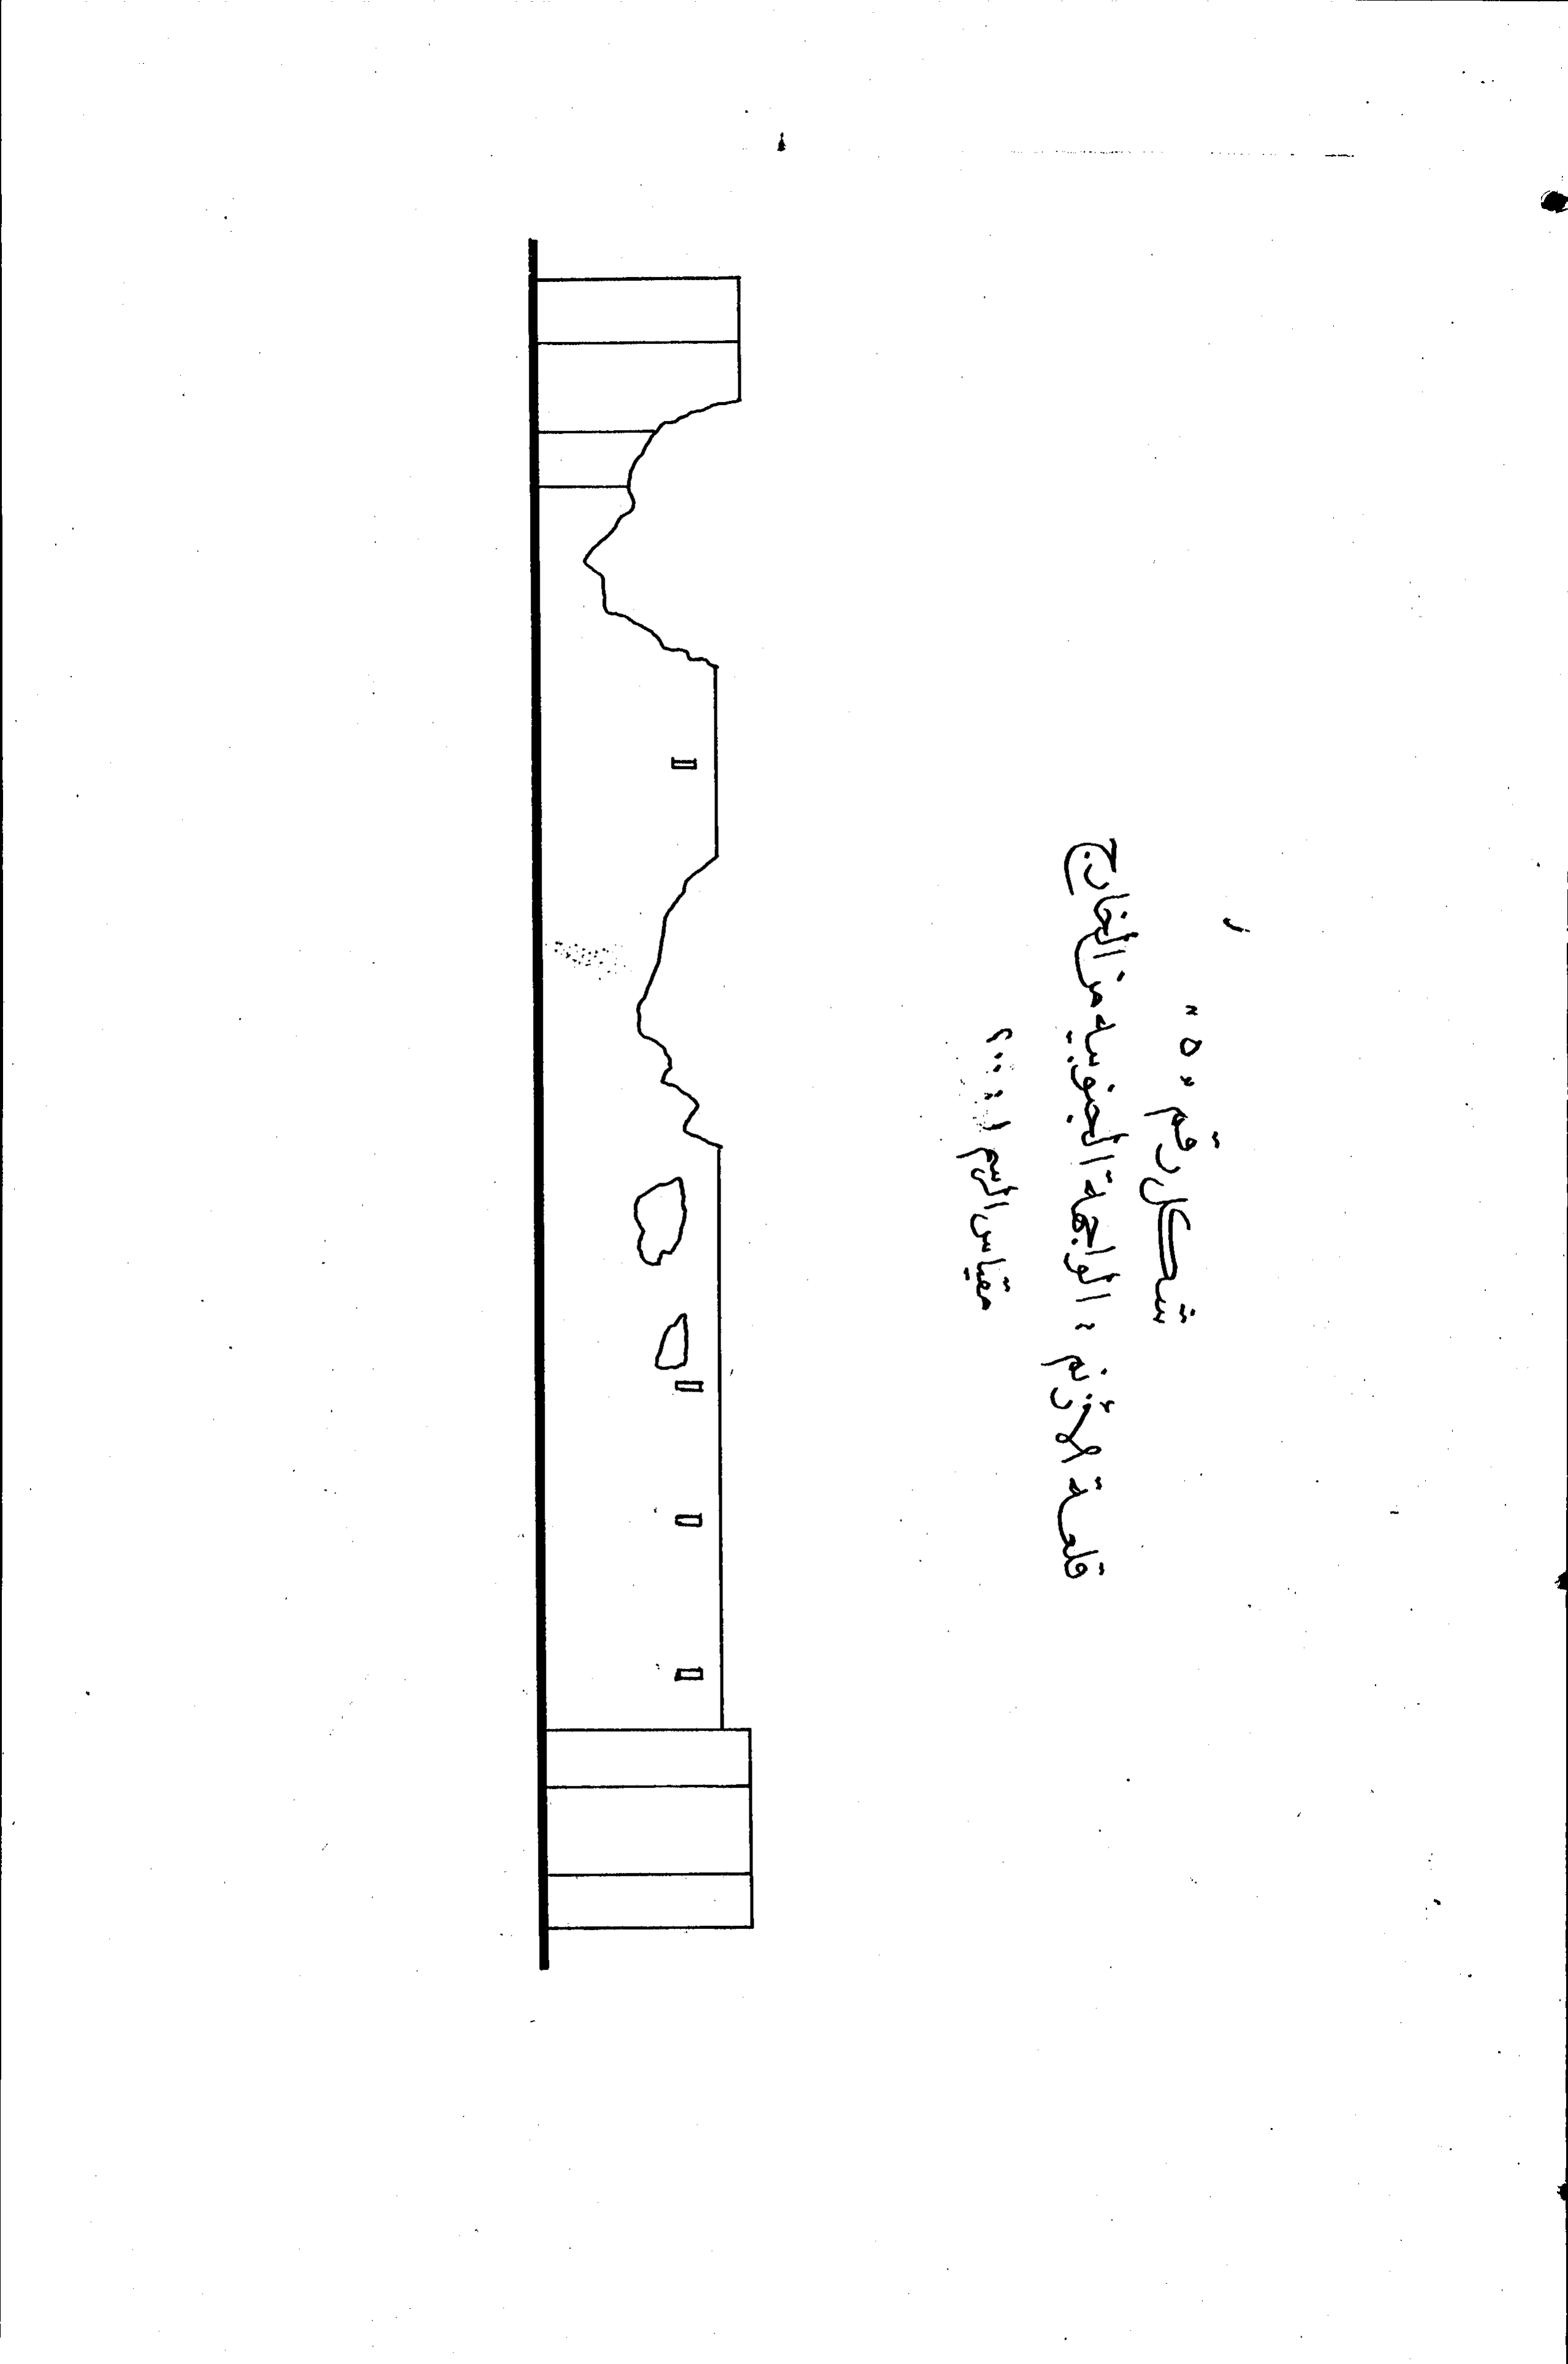 شكل رقم "٥"
قلعة الأزنم : الواجهة الجنوبيه من الخارج
مقياس الرسم ١ : ٢٠٠